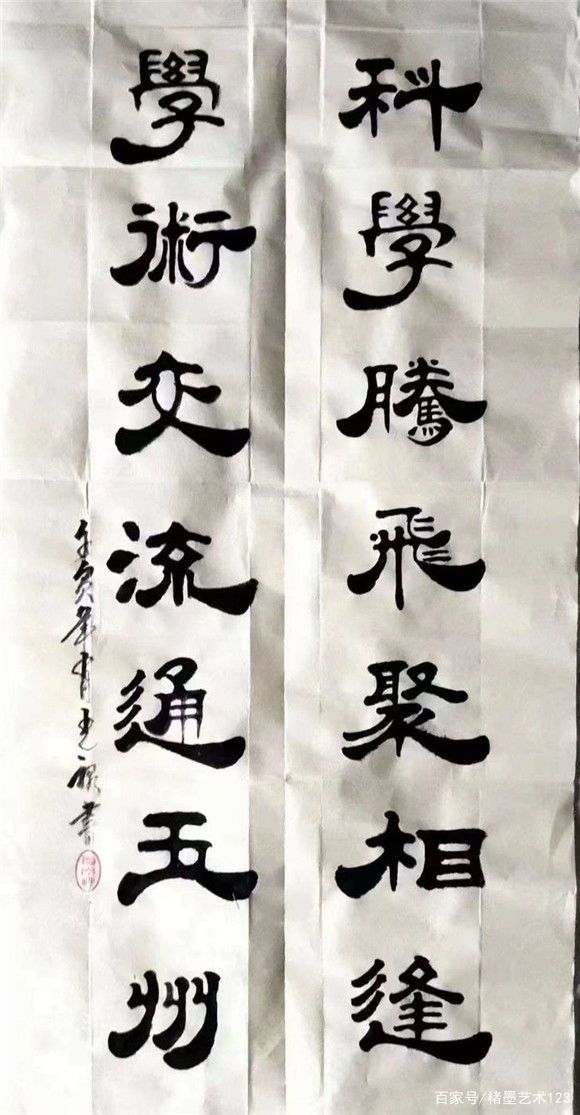 科學騰飛聚相逢
學術交流通五州
壬寅年肖 書
百家号/楮墨艺术123